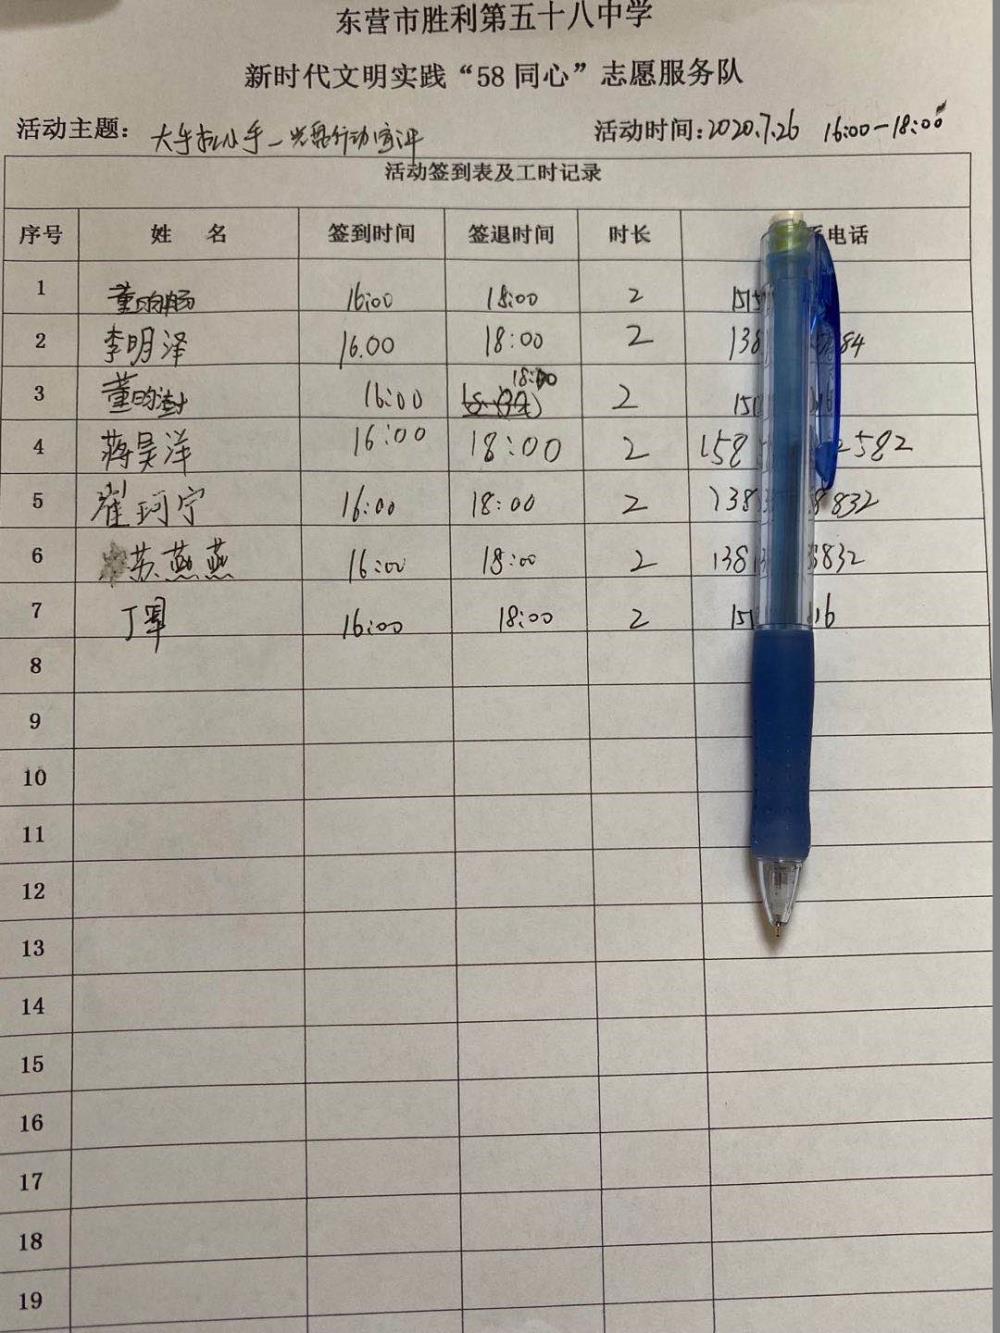 东营市胜利第五十八中学
新时代文明实践“58同心”志愿服务队
活动主题: 大手拉小手—光盘行动宣讲 活动时间:2020.7.26 16:00-18:00
活动签到表及工时记录
序号 姓 名 签到时间 签退时间 时长 电话
1 董昀畅 16:00 18:00 2
2 李明泽 16.00 18:00 2 138 84
3 董昀 16:00 18:00 2 150 16
4 蒋昊洋 16:00 18:00 2 158 2582
5 崔珂宁 16:00 18:00 2 138 8832
6 苏燕燕 16:00 18:00 2 138 3832
7 丁军 16:00 18:00 2 151 16
8
9
10
11
12
13
14
15
16
17
18
19